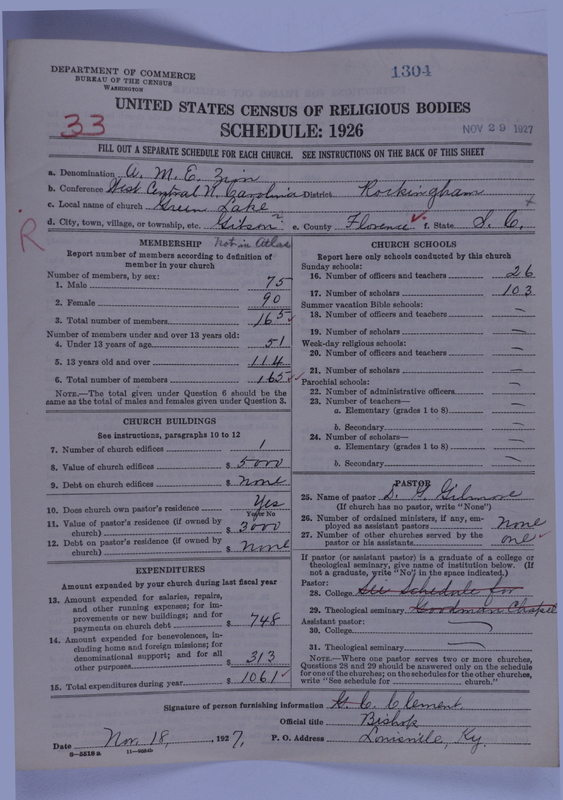 DEPARTMENT OF COMMERCE
BUREAU OF THE CENSUS
WASHINGTON
1304
UNITED STATES CENSUS OF RELIGIOUS BODIES
33
SCHEDULE: 1926
NOV 29 1927
FILL OUT A SEPARATE SCHEDULE FOR EACH CHURCH. SEE INSTRUCTIONS ON THE BACK OF THIS SHEET
a. Denomination A. M. E. Zion
b. Conference West Central N. Carolina District Rockingham
c. Local name of church Green Lake
d. City, town, village, or township, etc. Gibson e. County Florence f. State S. C.
R
MEMBERSHIP Not in Atlas
Report number of members according to definition of
member in your church
Number of members, by sex:
1. Male 75
2. Female 90
3. Total number of members 165
Number of members under and over 13 years old:
4. Under 13 years of age 51
5. 13 years old and over 114
6. Total number of members 165
NOTE.—The total given under Question 6 should be the
same as the total of males and females given under Question 3.
CHURCH BUILDINGS
See instructions, paragraphs 10 to 12
7. Number of church edifices 1
8. Value of church edifices $ 5000
9. Debt on church edifices $ None
10. Does church own pastor's residence? Yes
Yes or No
11. Value of pastor's residence (if owned by
church) $ 3000
12. Debt on pastor's residence (if owned by
church) $ None
EXPENDITURES
Amount expended by your church during last fiscal year
13. Amount expended for salaries, repairs,
and other running expenses; for im-
provements or new buildings; and for
payments on church debt $ 748
14. Amount expended for benevolences, in-
cluding home and foreign missions; for
denominational support; and for all
other purposes $ 313
15. Total expenditures during year $ 1061
CHURCH SCHOOLS
Report here only schools conducted by this church
Sunday schools:
16. Number of officers and teachers 26
17. Number of scholars 103
Summer vacation Bible schools:
18. Number of officers and teachers —
19. Number of scholars —
Week-day religious schools:
20. Number of officers and teachers —
21. Number of scholars —
Parochial schools:
22. Number of administrative officers —
23. Number of teachers—
a. Elementary (grades 1 to 8) —
b. Secondary —
24. Number of scholars—
a. Elementary (grades 1 to 8) —
b. Secondary —
PASTOR
25. Name of pastor D. G. Gilmore
(If church has no pastor, write "None")
26. Number of ordained ministers, if any, em-
ployed as assistant pastors None
27. Number of other churches served by the
pastor or his assistants one
If pastor (or assistant pastor) is a graduate of a college or
theological seminary, give name of institution below. (If
not a graduate, write "No" in the space indicated.)
Pastor:
28. College See Schedule for
29. Theological seminary Goodman Chapel
Assistant pastor:
30. College —
31. Theological seminary —
NOTE.—Where one pastor serves two or more churches,
Questions 28 and 29 should be answered only on the schedule
for one of the churches; on the schedules for the other churches,
write "See schedule for church."
Signature of person furnishing information G. C. Clement.
Official title Bishop
Date Nov. 18, 1927, P. O. Address Louisville, Ky.
8-5518a